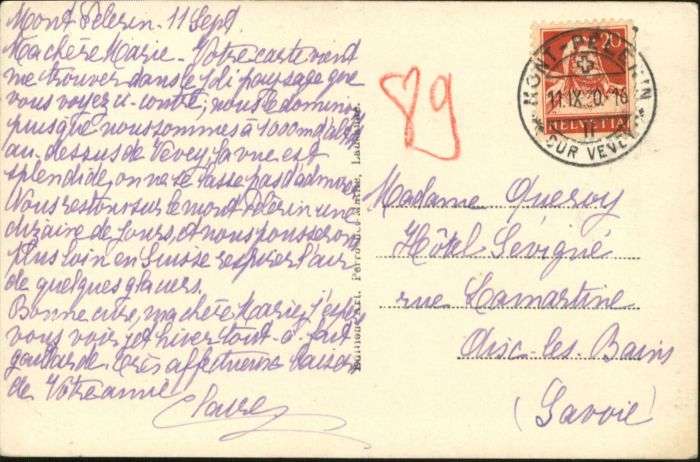 Mont Pelerin - 11 Sept.
Ma chère Marie - Votre carte vient
me trouver dans le joli paysage que
vous voyez ci-contre, nous le dominons
puisque nous sommes à 1000 m d'alt.
au-dessus de Vevey, la vue est
splendide, on ne se lasse pas d'admirer
Nous restons sur le mont Pèlerin une
dizaine de jours, et nous pousserons
plus loin en Suisse respirer l'air
de quelques glaciers.
Bonne cure, ma chère Marie, j'espère
vous voir cet hiver tout-à-fait
gaillarde. Très affectueux baisers
de Votre amie
Claire
Editions Art. Perrochet-Matile, Lausanne.
89
20
HELVETIA
MONT-PELERIN
11.IX.20.-16
II
SUR VEVEY
Madame Queroy
Hôtel Sévigné
rue Lamartine
Aix-les-Bains
(Savoie)